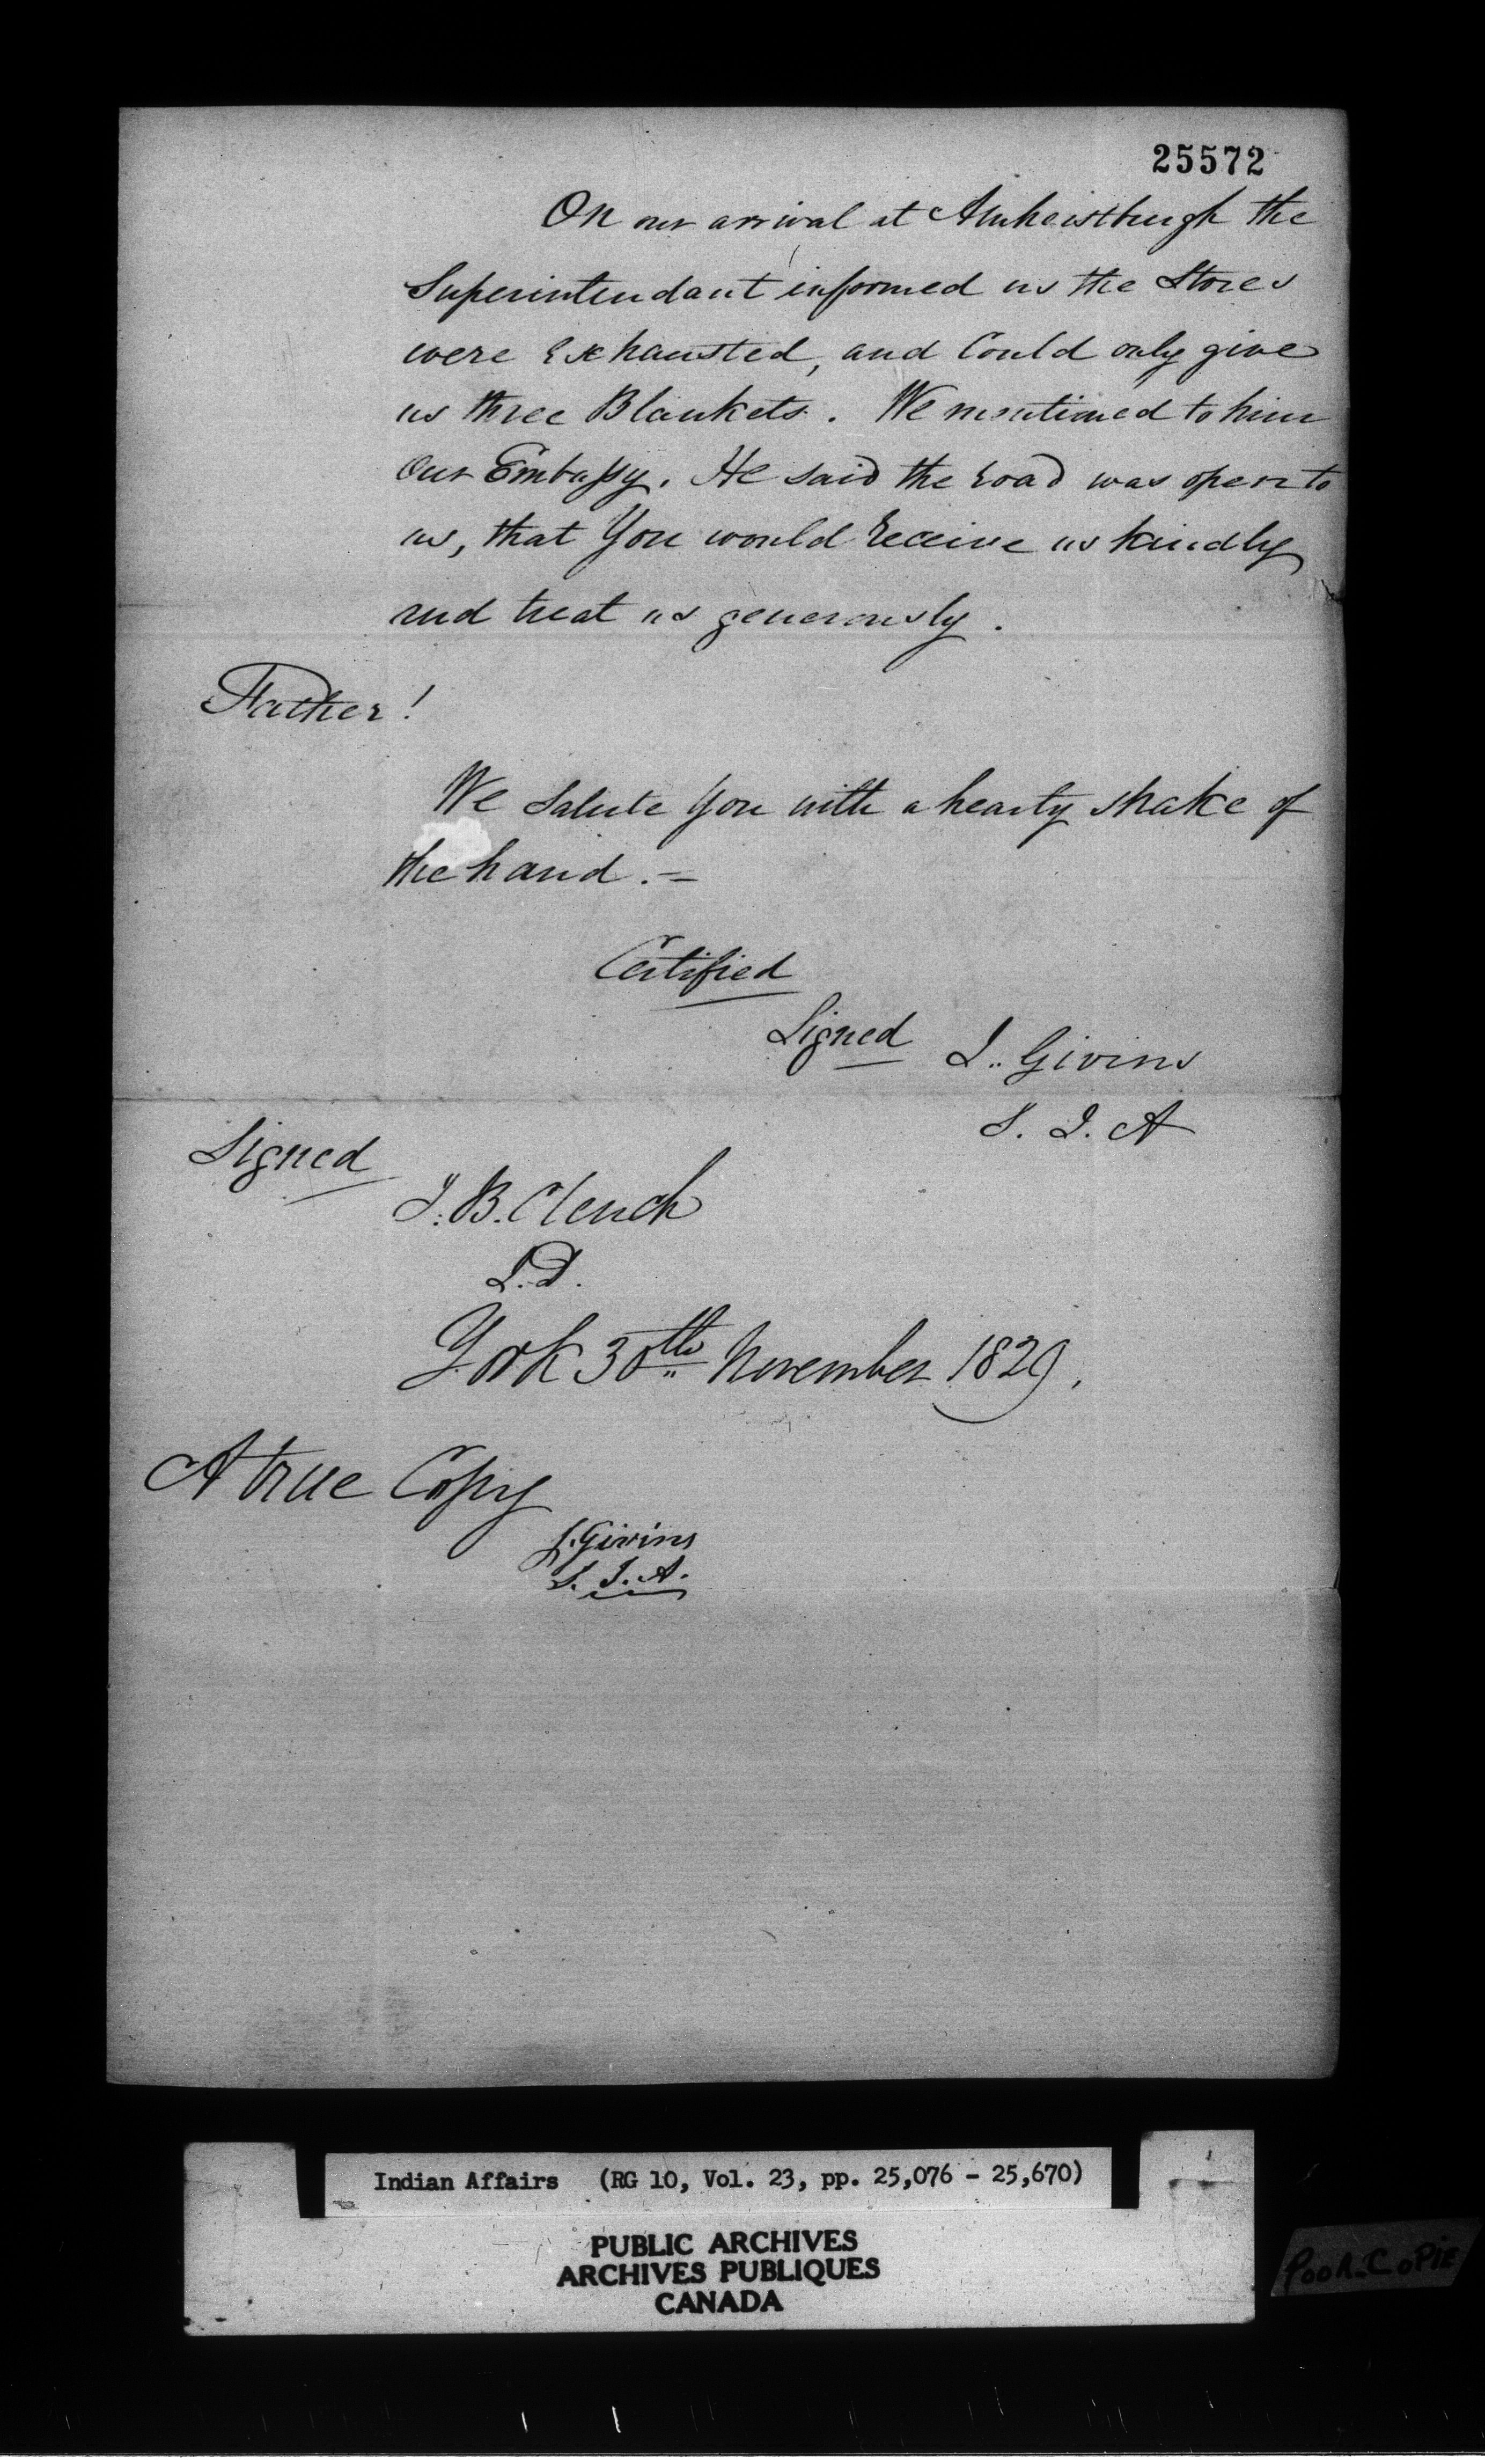 25572
On our arrival at Amherstburgh the
Superintendant informed us the Stores
were Exhausted, and Could only give
us three Blankets. We mentioned to him
Our Embassy. He said the road was open to
us, that You would receive us kindly
and treat us generously.
Father!
We Salute You with a hearty shake of
the hand.=
Certified
Signed J. Givins
S. I. A
Signed
J. B. Clench
I. D.
York 30th November 1829.
A true Copy
J. Givins
S. I. A.
Indian Affairs (RG 10, Vol. 23, pp. 25,076 - 25,670)
PUBLIC ARCHIVES
ARCHIVES PUBLIQUES
CANADA
POOR COPIE